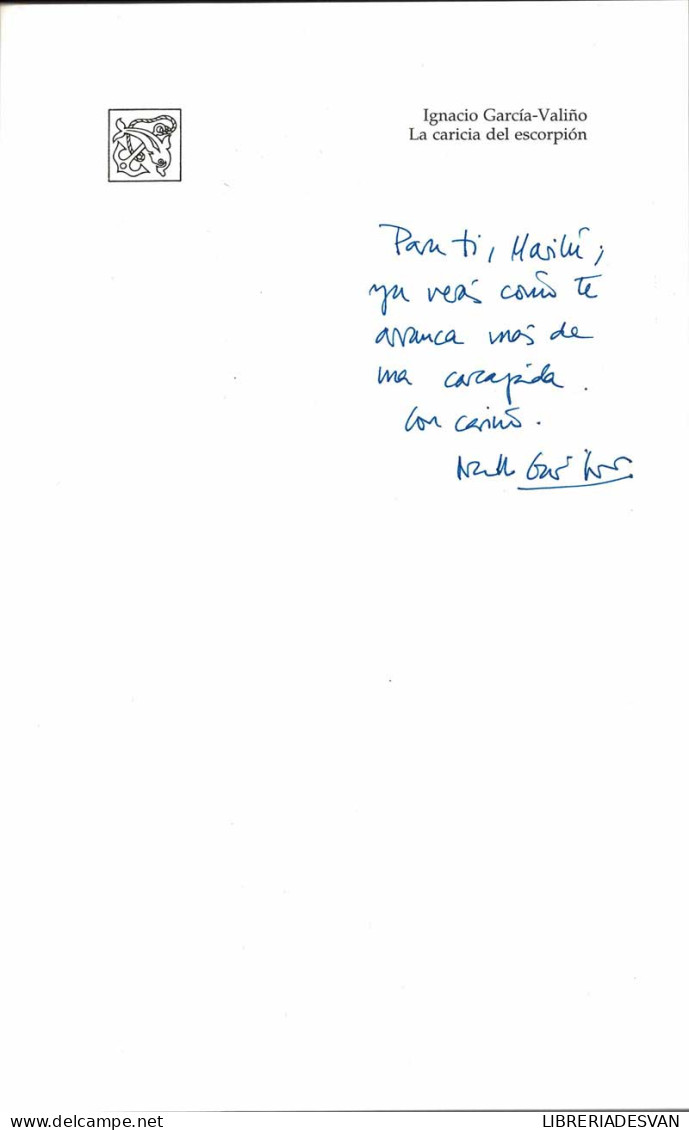 Ignacio García-Valiño
La caricia del escorpión
Para ti, Marilú;
ya verás como te
arranca más de
una carcajada.
Con cariño.
LIBRERIADESVAN